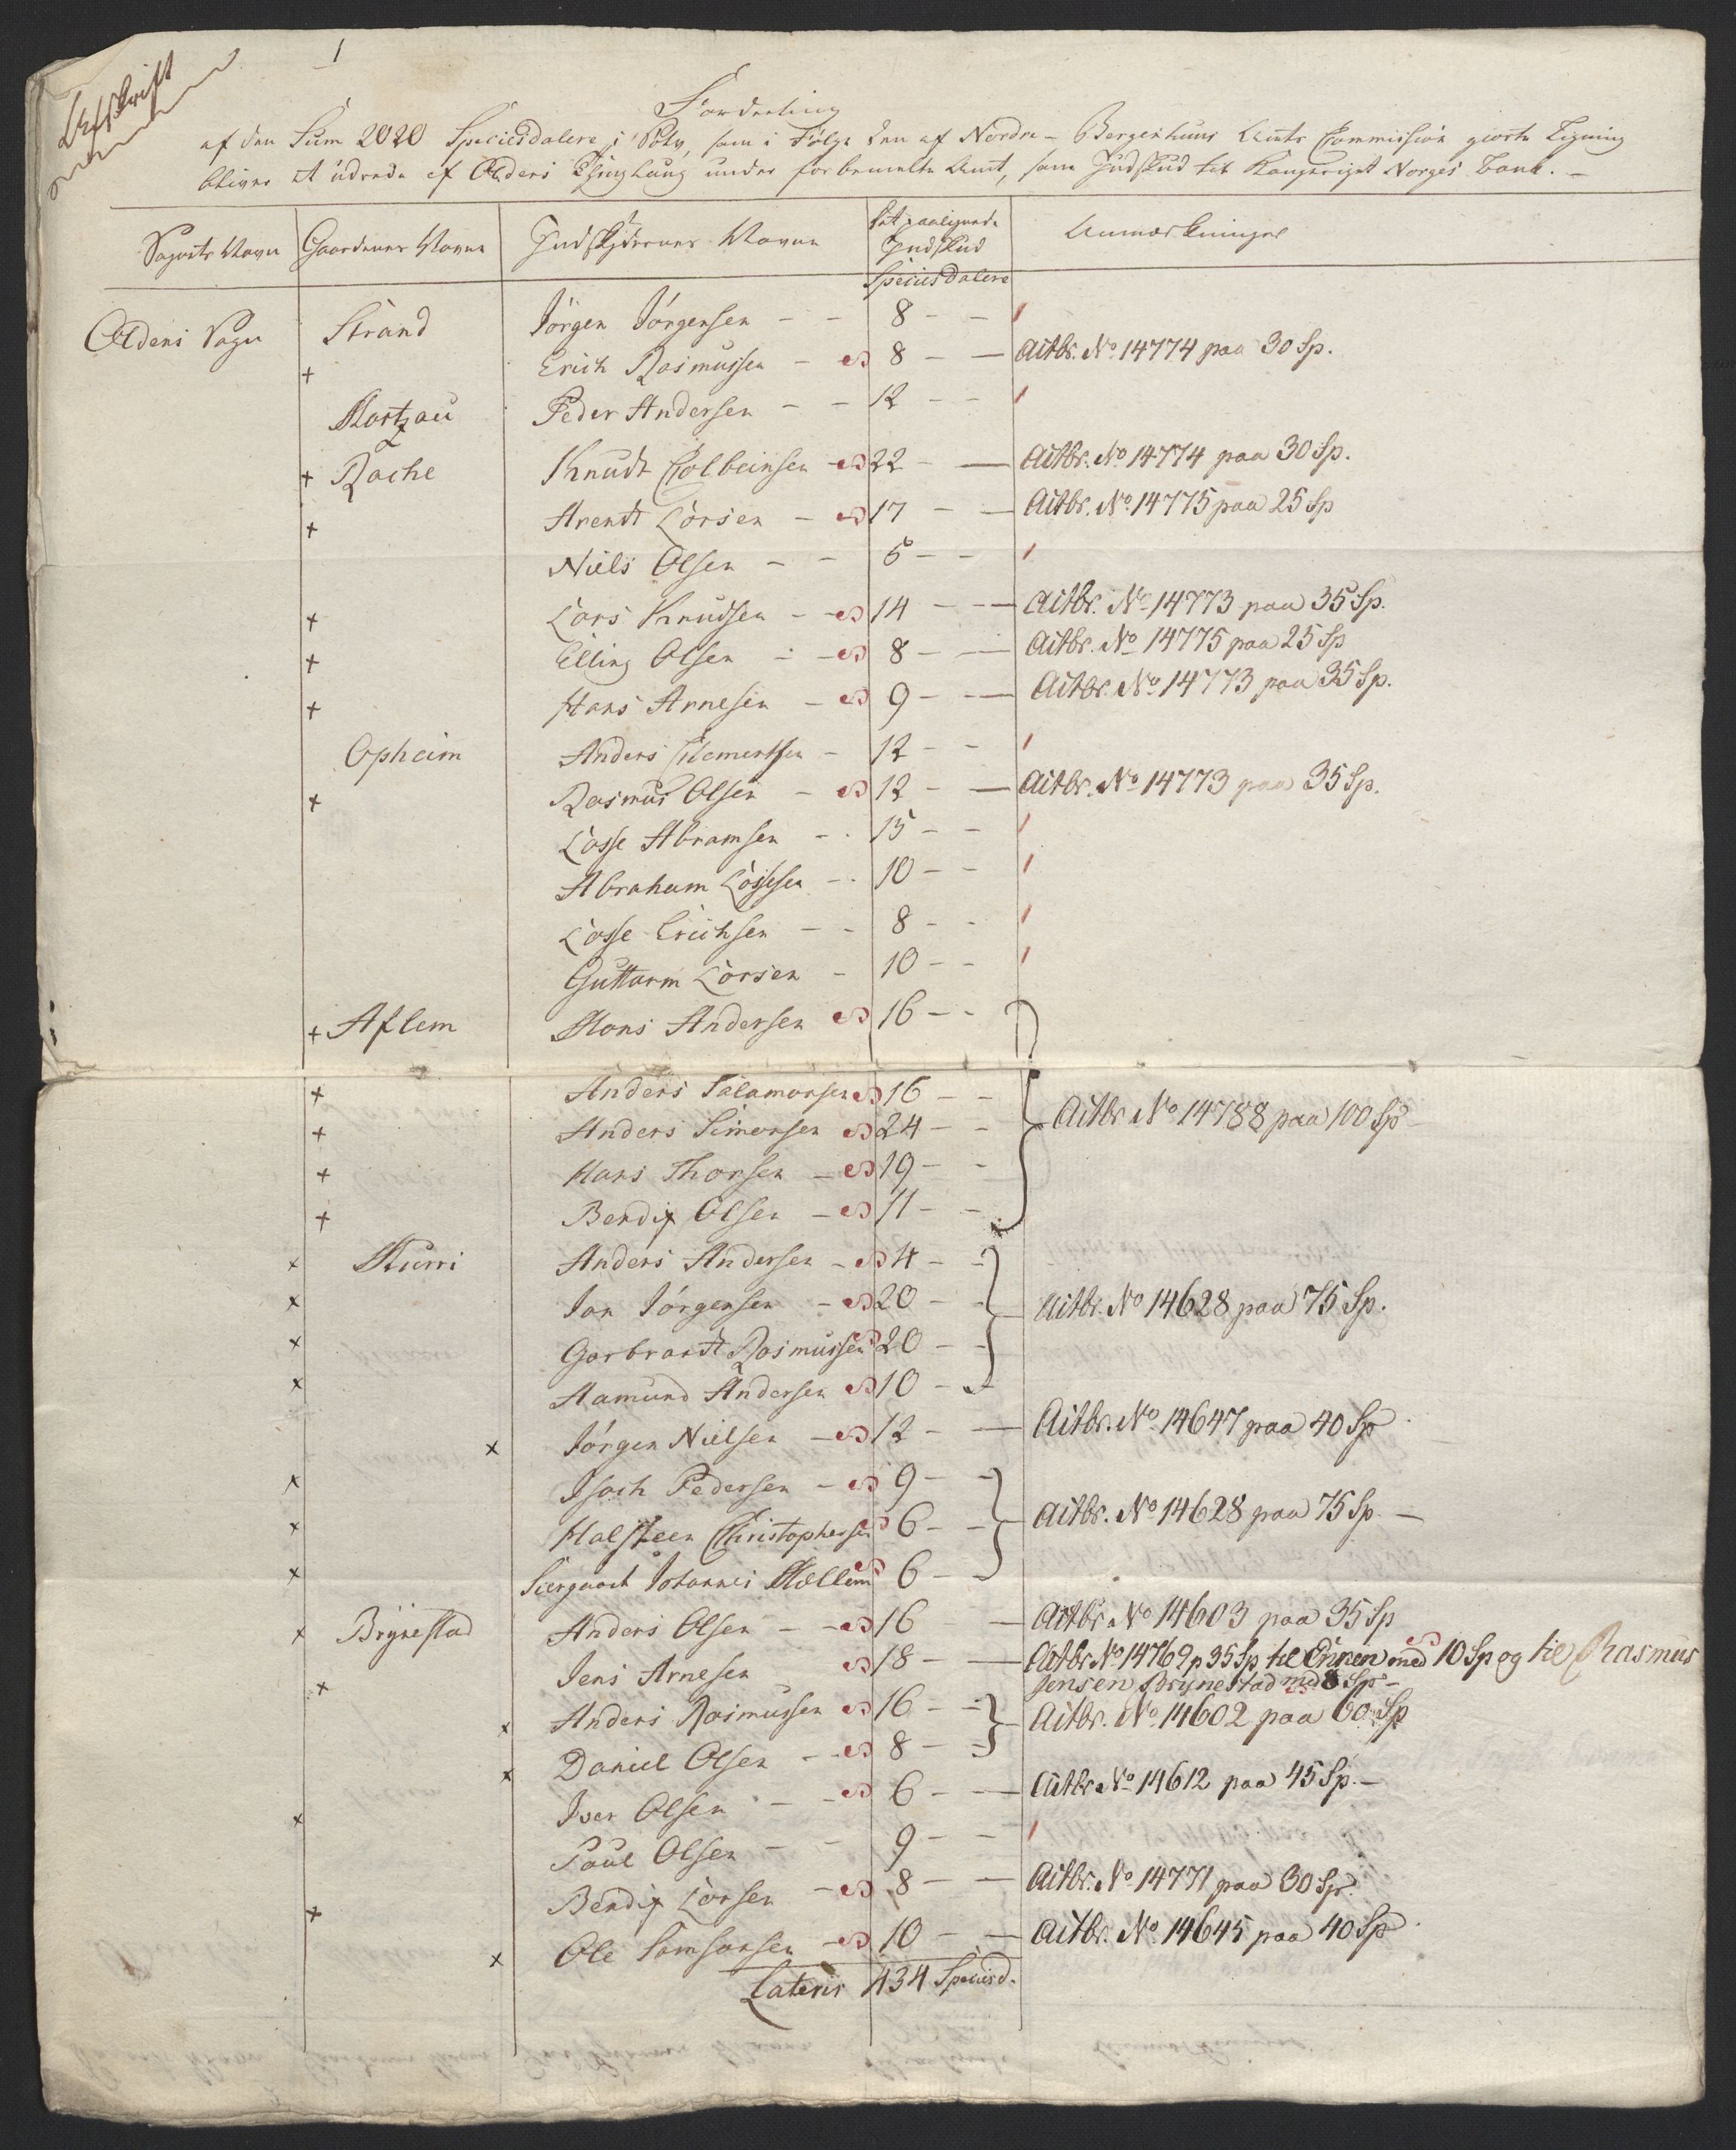 1
Afskrift
Fordeeling
af den Sum 2020 Speciesdalere i Sølv, som i Følge den af Nordre-Bergenhuus Amts Commission giorte Ligning
bliver at udrede af Oldens Skibs under forbemelte Amt, som Indskud til Kongeriget Norges Bank. -
Sognets Navn | Gaardenes Navne | Indskydernes Navne | Det paalignede Indskud | Anmærkninger
Speciesdalere
Oldens Sogn | Strand | Jörgen Jörgensen - - | 8 - - | /
+ | Erich Rasmussen - | 8 - - | Actbr. No 14774 paa 30 Sp.
Peder Andersen - - | 12 - - | /
+ Rache | Knudt Colbeinsen - | 22 - - | Actbr. No 14774 paa 30 Sp.
+ | Arendt Larsen - | 17 - - | Actbr. No 14775 paa 25 Sp
Niels Olsen - - | 5 - - | /
+ | Lars Knudsen - - | 14 - - | Actbr. No 14773 paa 35 Sp.
+ | Elling Olsen - - | 8 - - | Actbr. No 14775 paa 25 Sp
+ | Hans Arnesen - | 9 - - | Actbr. No 14773 paa 35 Sp.
Opheim | Anders Clemertsen - | 12 - - | /
+ | Rasmus Olsen - | 12 - - | Actbr. No 14773 paa 35 Sp.
Lasse Abramsen - - | 15 - - | /
Abraham Lassesen - - | 10 - - | /
Lasse Erichsen - - | 8 - - | /
Guttorm Larsen - | 10 - - | /
+ Aflem | Mons Andersen | 16 - - }
+ | Anders Salamonsen | 16 - -
+ | Anders Simonsen | 24 - - } Actbr No 14788 paa 100 Sp -
+ | Hans Thorsen - | 19 - -
+ | Bendix Olsen - | 11 - -
x Muri | Anders Andersen - | 4 - -
x | Jon Jörgensen - | 20 - - } Actbr. No 14628 paa 75 Sp.
x | Garbrandt Rasmussen | 20 - -
x | Aamund Andersen | 10 - -
x | Jörgen Nielsen - | 12 - - | Actbr. No 14647 paa 40 Sp
x | Isach Pedersen - | 9 - -
x | Halsteen Christophersen | 6 - - } Actbr. No 14628 paa 75 Sp. -
x | Johannes | 6 - -
x Brynestad | Anders Olsen - - | 16 - | Actbr. No 14603 paa 35 Sp
+ | Jens Arnesen | 18 - - | Actbr No 14769 p 35 Sp, til Enken med 10 Sp og til Rasmus
Jensen Brynestad med 8 Sp -
x | Anders Rasmussen | 16 - - } Actbr. No 14602 paa 60 Sp
x | Daniel Olsen - | 8 - -
x | Iver Olsen - - | 6 - - | Actbr No 14612 paa 45 Sp. -
Paul Olsen - - | 9 - - | /
+ | Bendix Larsen - | 8 - - | Actbr. No 14771 paa 30 Sp.
x | Ole Samsonsen - | 10 - - | Actbr. No 14645 paa 40 Sp
Lateris 434 Speciesd.